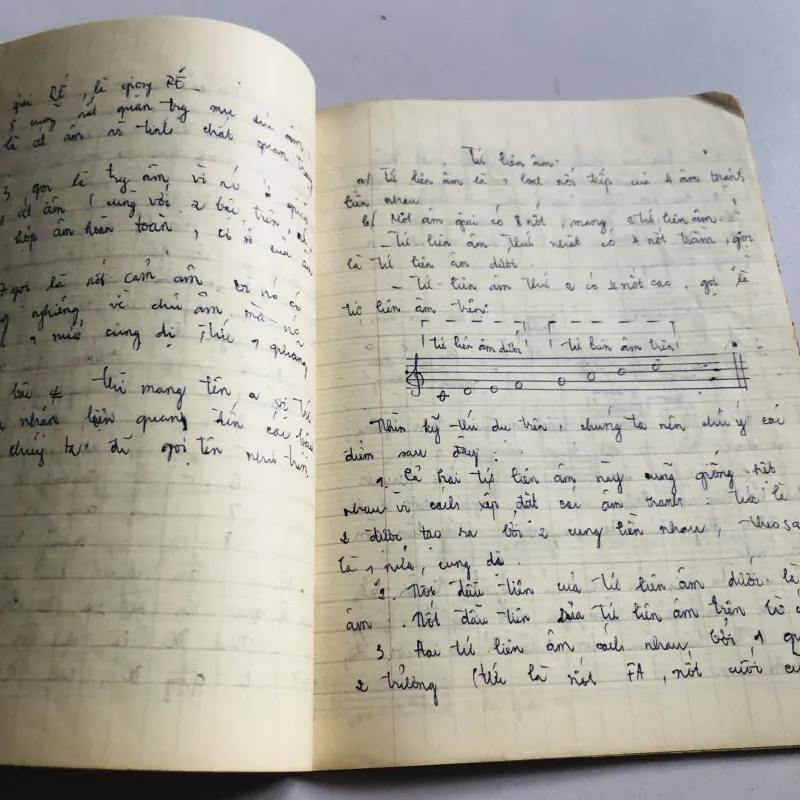 giải RÉ, là giọng RÉ
5 cũng rất quan trg
là át âm vì tính chất quan trọng
3 gọi là trg âm vì nó ở quãng
át âm (cùng với 2 bài trên,
hợp âm hoàn toàn,
7 gọi là nốt cảm âm vì nó có
nghiêng về chủ âm, mà nó
1 nửa cung đi,
bài 4 thì mang tên
nhấn liên quan đến các
ta đã gọi tên như trên
Tứ liên âm:
a/ Tứ liên âm là 1 loạt nối tiếp của 4 âm thanh
liền nhau
b/ Một âm giai có 8 nốt, mang 2 tứ liên âm.
- Tứ liên âm thứ nhất có 4 nốt trầm, gọi
là tứ liên âm dưới
- Tứ liên âm thứ 2 có 4 nốt cao, gọi là
tứ liên âm trên:
tứ liên âm dưới tứ liên âm trên
Nhìn kỹ thí dụ trên, chúng ta nên chú ý các
điểm sau đây:
1. Cả hai tứ liên âm này cũng giống hệt
nhau vì cách xếp đặt các âm thanh: tức là
được tạo ra bởi 2 cung liền nhau, theo sa
là 1 nửa cung đi.
2. Nốt đầu tiên của tứ liên âm dưới là
âm. Nốt đầu tiên của tứ liên âm trên là
3. Hai tứ liên âm cách nhau bởi 1 qu
2 trưởng (tức là nốt FA, nốt cuối cu